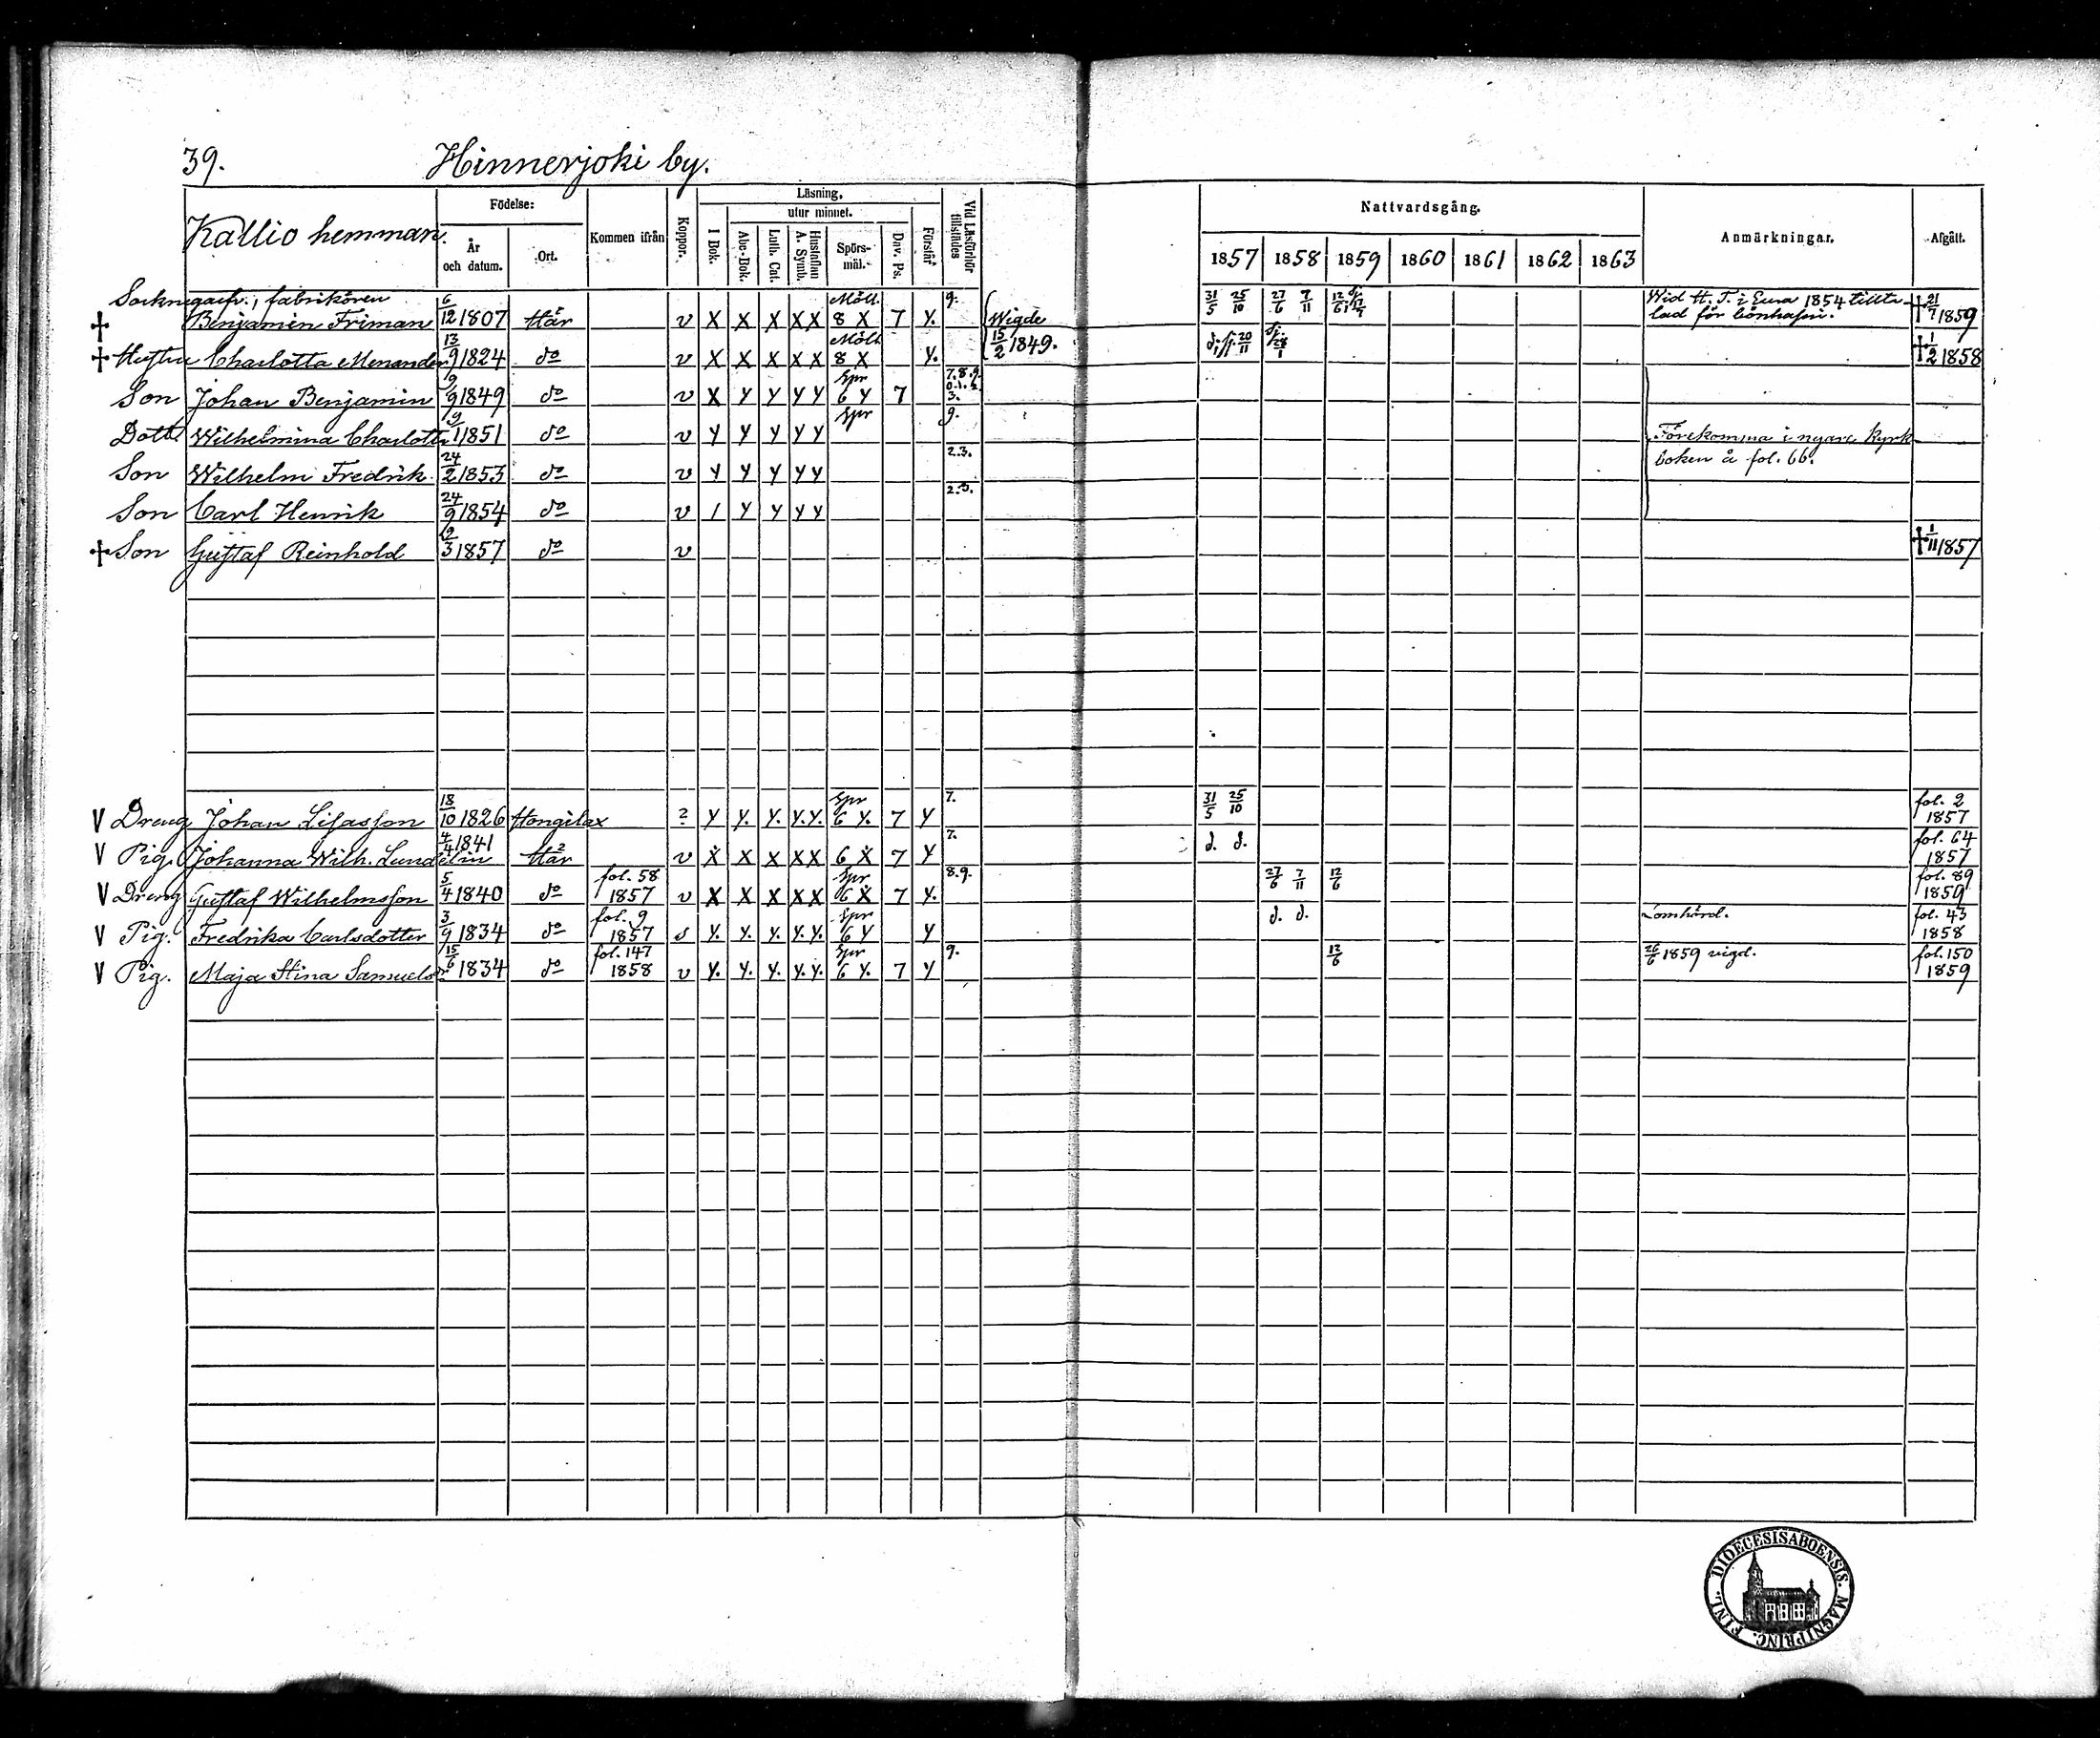 39. Hinnerjoki by.
Kallio hemman.
Födelse:
År och datum.
Ort.
Kommen ifrån
Koppor.
Läsning,
I Bok.
utur minnet.
Abc-Bok.
Luth. Cat.
Hustaflan A. Symb.
Spörs-mål.
Dav. Ps.
Förstår
Vid Läsförhör tillstädes
Nattvardsgång.
1857 1858 1859 1860 1861 1862 1863
Anmärkningar.
Afgått.
fabrikören Möll. 9. Wid H. T. i Eura 1854 tillta-
† Benjamin Friman 6/12 1807 Här v X X X X X 8 X 7 Y. Wigde 31/5 25/10 27/6 7/11 12/6 lad för † 21/7 1859
† Hustru Charlotta Menander 13/9 1824 do v X X X X X Möll. 8 X Y. 15/2 1849. 20/11 † 1/2 1858
Son Johan Benjamin 9/9 1849 do v X Y Y Y Y Spr 6 Y 7 7.8.9. 0.1.2. 3.
Dott. Wilhelmina Charlotta 1851 do v Y Y Y Y Y Spr 9. Förekomma i nyare Kyrk
Son Wilhelm Fredrik 24/2 1853 do v Y Y Y Y Y 2.3. boken å fol. 66.
Son Carl Henrik 24/9 1854 do v / Y Y Y Y 2.3.
† Son Gustaf Reinhold 3 1857 do v † 1/11 1857
V Dreng Johan Lisasson 18/10 1826 Hongilax ? Y Y. Y. Y. Y. Spr 6 Y. 7 Y 7. 31/5 25/10 fol. 2 1857
V Pig. Johanna Wilh. Lundelin 4/4 1841 Här v X X X X X 6 X 7 Y 7. d. d. fol. 64 1857
V Dreng Gustaf Wilhelmsson 5/4 1840 do fol. 58 1857 v X X X X X Spr 6 X 7 Y. 8.9. 27/6 7/11 12/6 fol. 89 1859
V Pig. Fredrika Carlsdotter 3/9 1834 do fol. 9 1857 s Y. Y. Y. Y. Y. Spr 6 Y Y d. d. Lomhörd. fol. 43 1858
V Pig. Maja Stina Samuelsdr 15/6 1834 do fol. 147 1858 v Y. Y. Y. Y. Y. Spr 6 Y. 7 Y 9. 12/6 26/6 1859 vigd. fol. 150 1859
DIOECESIS ABOENSIS. MAGNI PRINC. FINL.